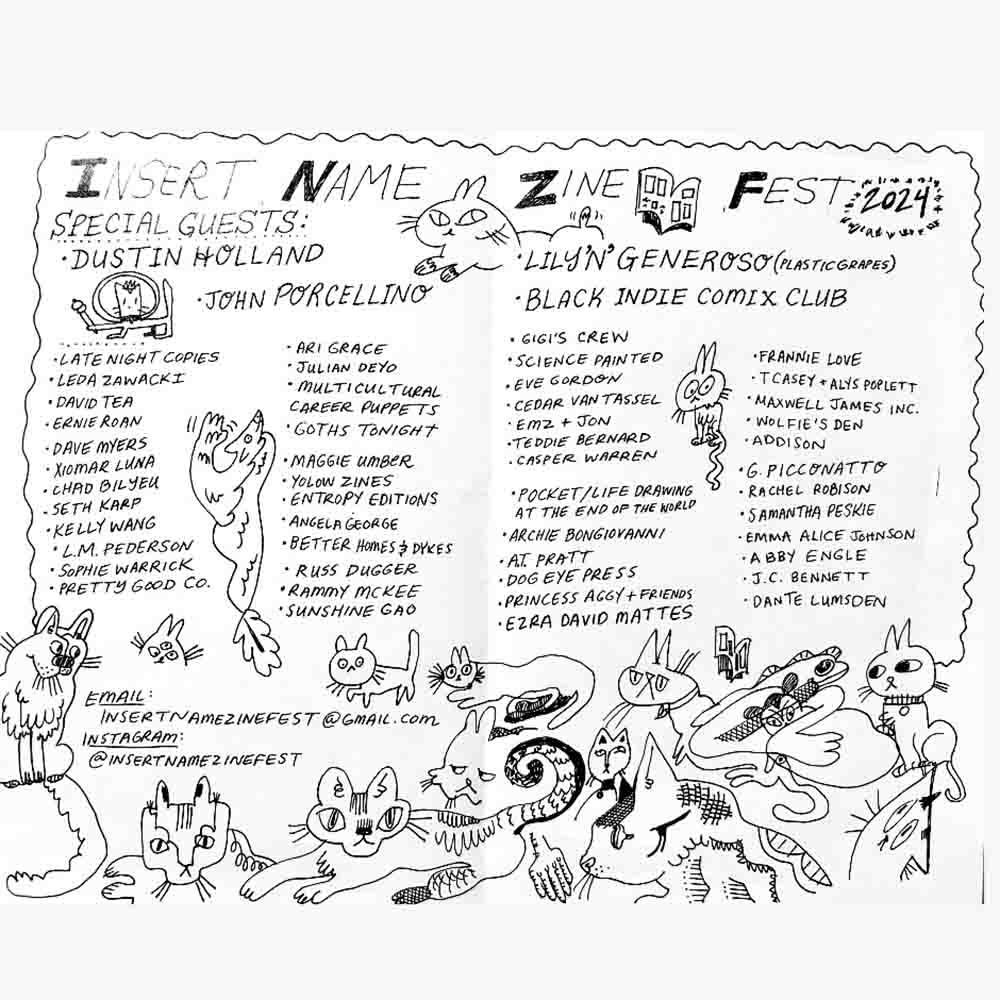 INSERT NAME ZINE FEST 2024
SPECIAL GUESTS:
· DUSTIN HOLLAND
· JOHN PORCELLINO
· LILY 'N' GENEROSO (PLASTICGRAPES)
· BLACK INDIE COMIX CLUB
· LATE NIGHT COPIES
· LEDA ZAWACKI
· DAVID TEA
· ERNIE ROAN
· DAVE MYERS
· XIOMAR LUNA
· CHAD BILYEU
· SETH KARP
· KELLY WANG
· L.M. PEDERSON
· SOPHIE WARRICK
· PRETTY GOOD CO.
· ARI GRACE
· JULIAN DEYO
· MULTICULTURAL
CAREER PUPPETS
· GOTHS TONIGHT
· MAGGIE UMBER
· YOLOW ZINES
· ENTROPY EDITIONS
· ANGELA GEORGE
· BETTER HOMES & DYKES
· RUSS DUGGER
· RAMMY MCKEE
· SUNSHINE GAO
· GIGI'S CREW
· SCIENCE PAINTED
· EVE GORDON
· CEDAR VAN TASSEL
· EMZ + JON
· TEDDIE BERNARD
· CASPER WARREN
· POCKET/LIFE DRAWING
AT THE END OF THE WORLD
· ARCHIE BONGIOVANNI
· A.T. PRATT
· DOG EYE PRESS
· PRINCESS AGGY + FRIENDS
· EZRA DAVID MATTES
· FRANNIE LOVE
· T CASEY + ALYS POPLETT
· MAXWELL JAMES INC.
· WOLFIE'S DEN
· ADDISON
· G. PICCONATTO
· RACHEL ROBISON
· SAMANTHA PESKIE
· EMMA ALICE JOHNSON
· ABBY ENGLE
· J.C. BENNETT
· DANTE LUMSDEN
EMAIL:
INSERTNAMEZINEFEST@GMAIL.COM
INSTAGRAM:
@INSERTNAMEZINEFEST